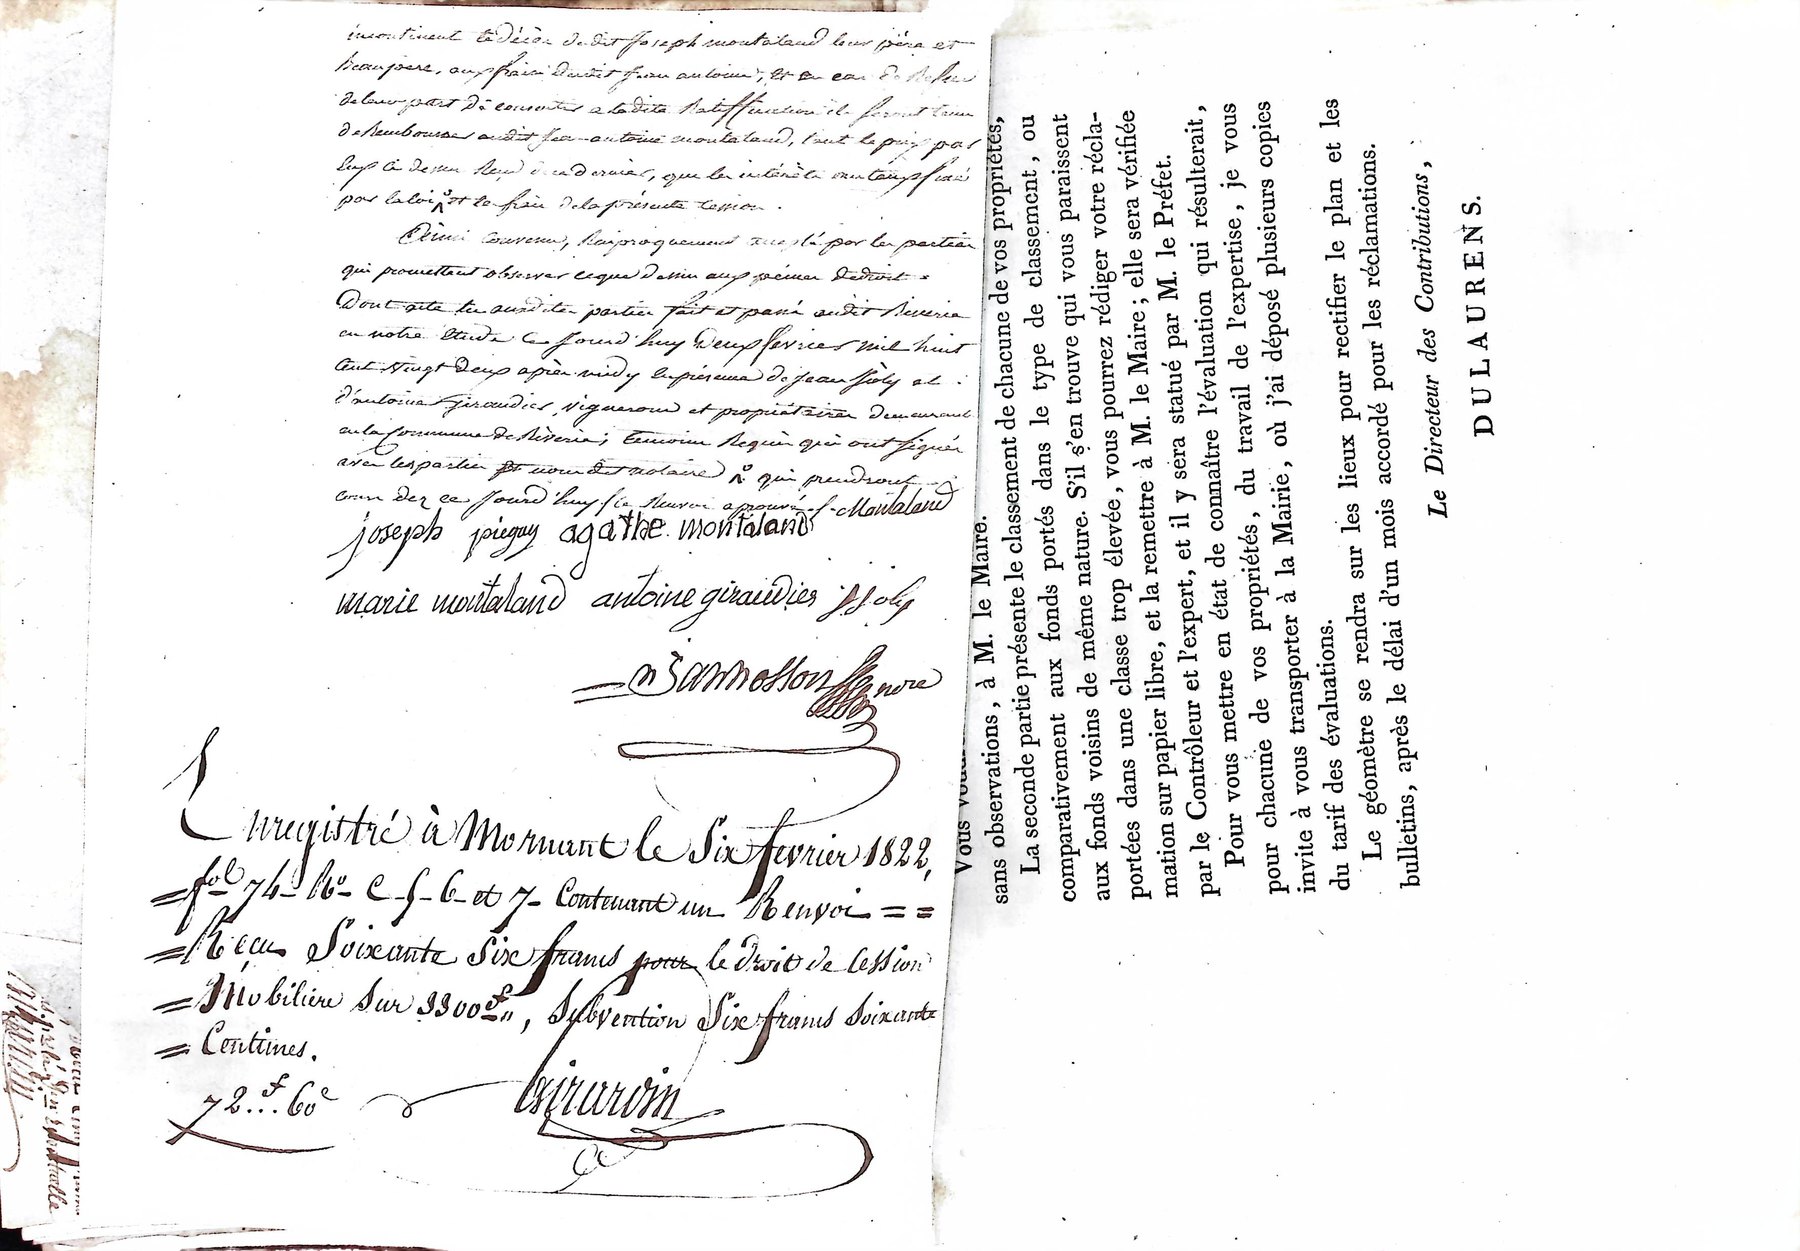 incontinent le décès dudit Joseph montaland leur père et
beaupère, aux frais dudit jean antoine, et en cas de Refus
de leur part de consentir a ladite Ratiffication ils seront tenus
de Rembourser audit jean antoine montaland, tout le prix par
eux ci dessus Reçu, que les intérêts au temps fixé
par la loi et les frais de la présente cession.
Ainsi convenu, Réciproquement accepté par les parties
qui promettent observer ce que dessus aux peines de droit.
Dont acte lu auxdites parties fait et passé audit Riverie
en notre étude ce jourd'huy deux fevrier mil huit
cent vingt deux après midy en présence de jean joly et
d'antoine giraudier, vignerons et propriétaires demeurant
en la Commune de Riverie, temoins Requis qui ont signés
avec les parties et nous dit notaire qui prendront
cours dez ce jourd'huy Renvoi aprouvé. J. Montaland
joseph pieguy agathe. montaland
marie montaland antoine giraudier j joly
Bannosson nore
Enregistré à Mornant le Six fevrier 1822,
= fol 74 Ro C. 6 et 7 Contenant un Renvoi = =
= Recu Soixante Six francs pour le droit de Cession
= Mobiliere Sur 3300 f, Subvention Six francs Soixante
= Centimes.
72 f... 60 c
Girardin
sans observations, à M. le Maire.
La seconde partie présente le classement de chacune de vos propriétés,
comparativement aux fonds portés dans le type de classement, ou
aux fonds voisins de même nature. S'il s'en trouve qui vous paraissent
portées dans une classe trop élevée, vous pourrez rédiger votre récla-
mation sur papier libre, et la remettre à M. le Maire; elle sera vérifiée
par le Contrôleur et l'expert, et il y sera statué par M. le Préfet.
Pour vous mettre en état de connaître l'évaluation qui résulterait,
pour chacune de vos propriétés, du travail de l'expertise, je vous
invite à vous transporter à la Mairie, où j'ai déposé plusieurs copies
du tarif des évaluations.
Le géomètre se rendra sur les lieux pour rectifier le plan et les
bulletins, après le délai d'un mois accordé pour les réclamations.
Le Directeur des Contributions,
DULAURENS.